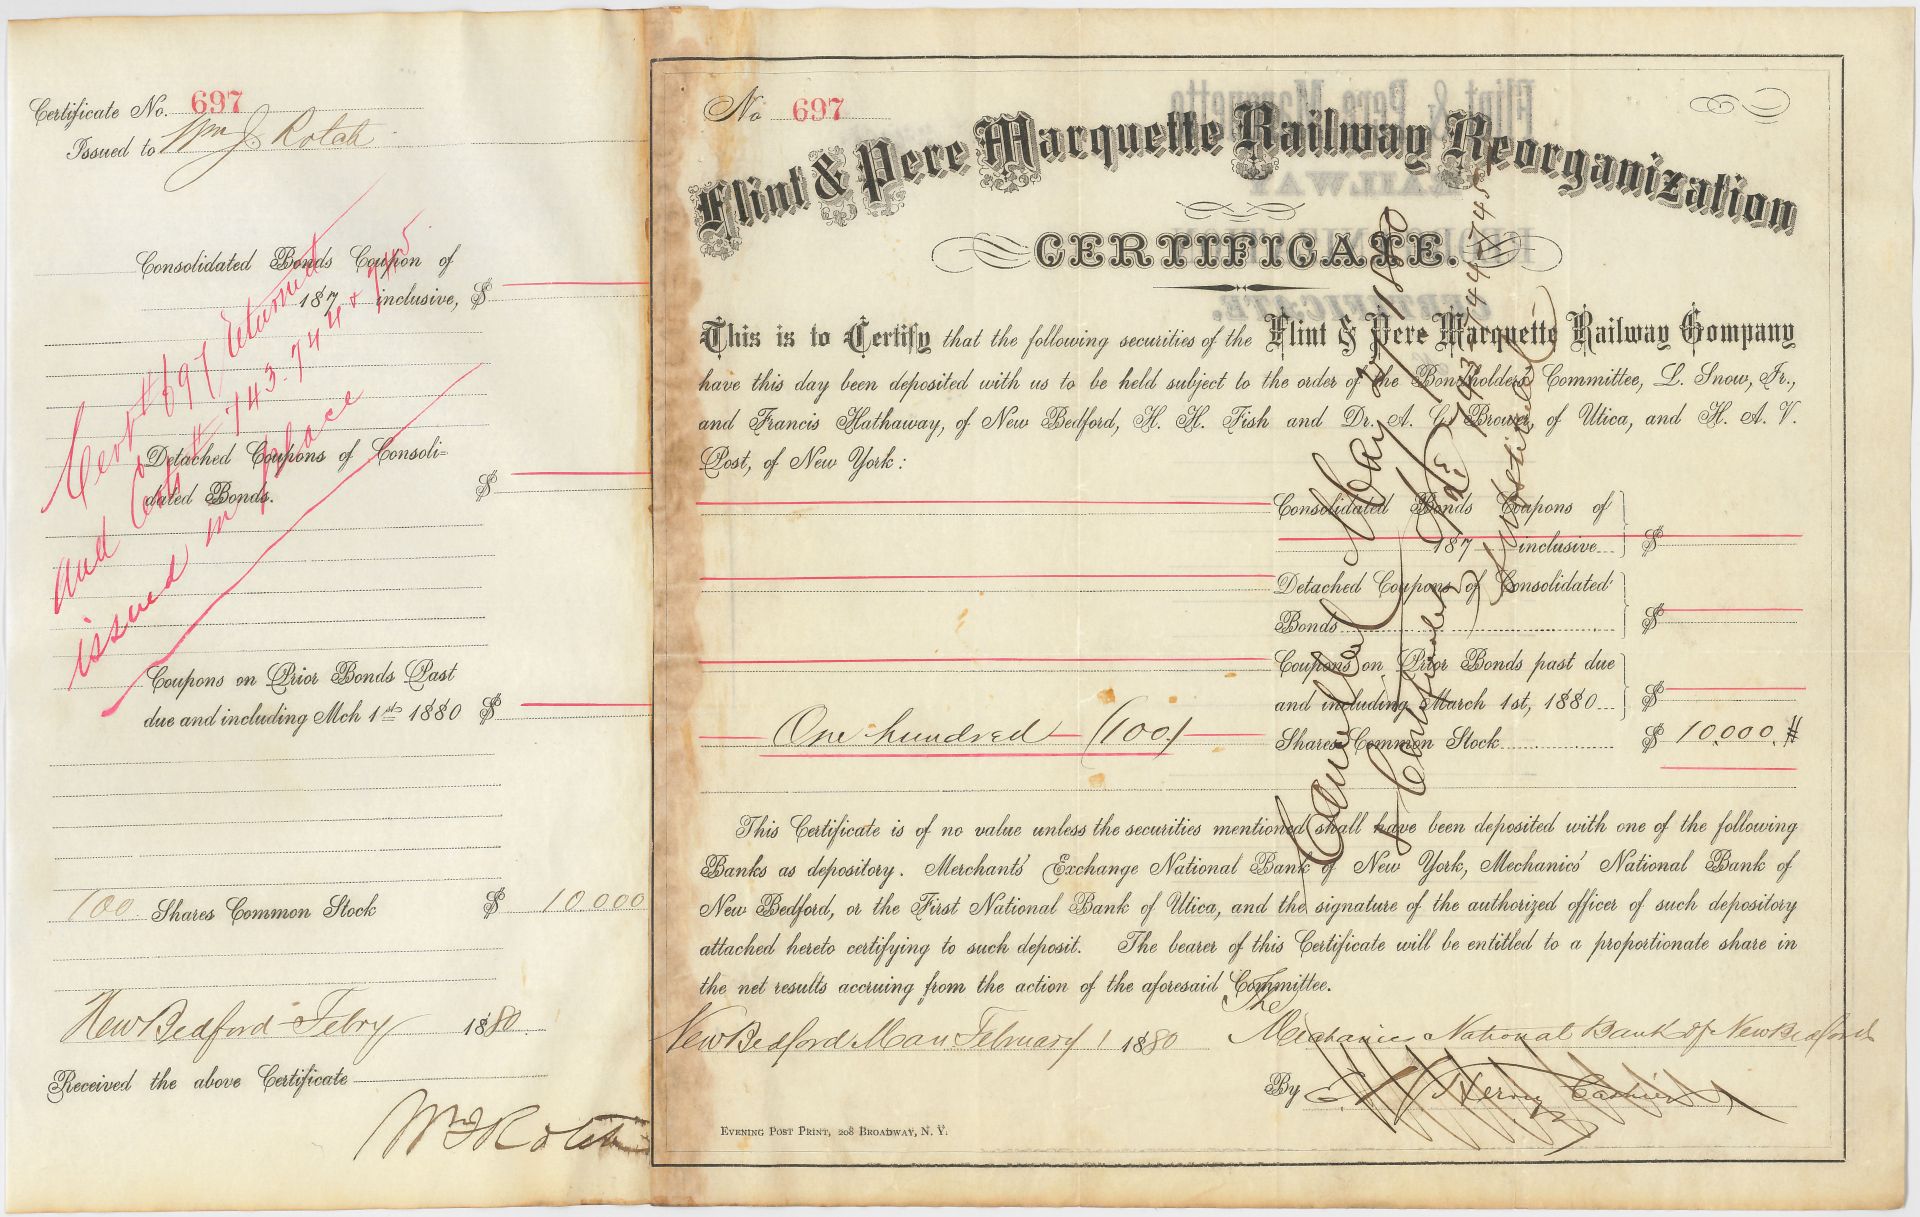 Certificate No. 697
Issued to Wm J. Rotch
Consolidated Bonds Coupon of
187 inclusive, $
Detached Coupons of Consoli-
dated Bonds. $
Cert # 697 returned
and Certs # 743. 744 & 745
issued in place
Coupons on Prior Bonds Past
due and including Mch 1st 1880 $
100 Shares Common Stock $ 10000
New Bedford Febry 1880
Received the above Certificate
Wm J Rotch
No 697
Flint & Pere Marquette Railway Reorganization
CERTIFICATE.
This is to Certify that the following securities of the Flint & Pere Marquette Railway Company
have this day been deposited with us to be held subject to the order of the Bondholders' Committee, L. Snow, Jr.,
and Francis Hathaway, of New Bedford, H. H. Fish and Dr. A. G. Brower, of Utica, and H. A. V.
Post, of New York:
Consolidated Bonds Coupons of
187 inclusive $
Detached Coupons of Consolidated
Bonds $
Coupons on Prior Bonds past due
and including March 1st, 1880 $
One hundred (100) Shares Common Stock $ 10,000.
Cancelled May 27 1880
Certificates No 743 744 & 745
substituted
This Certificate is of no value unless the securities mentioned shall have been deposited with one of the following
Banks as depository. Merchants' Exchange National Bank of New York, Mechanics' National Bank of
New Bedford, or the First National Bank of Utica, and the signature of the authorized officer of such depository
attached hereto certifying to such deposit. The bearer of this Certificate will be entitled to a proportionate share in
the net results accruing from the action of the aforesaid Committee.
New Bedford Mass February 1 1880
The Mechanics National Bank of New Bedford
By Hervey Cashier
EVENING POST PRINT, 208 BROADWAY, N. Y.